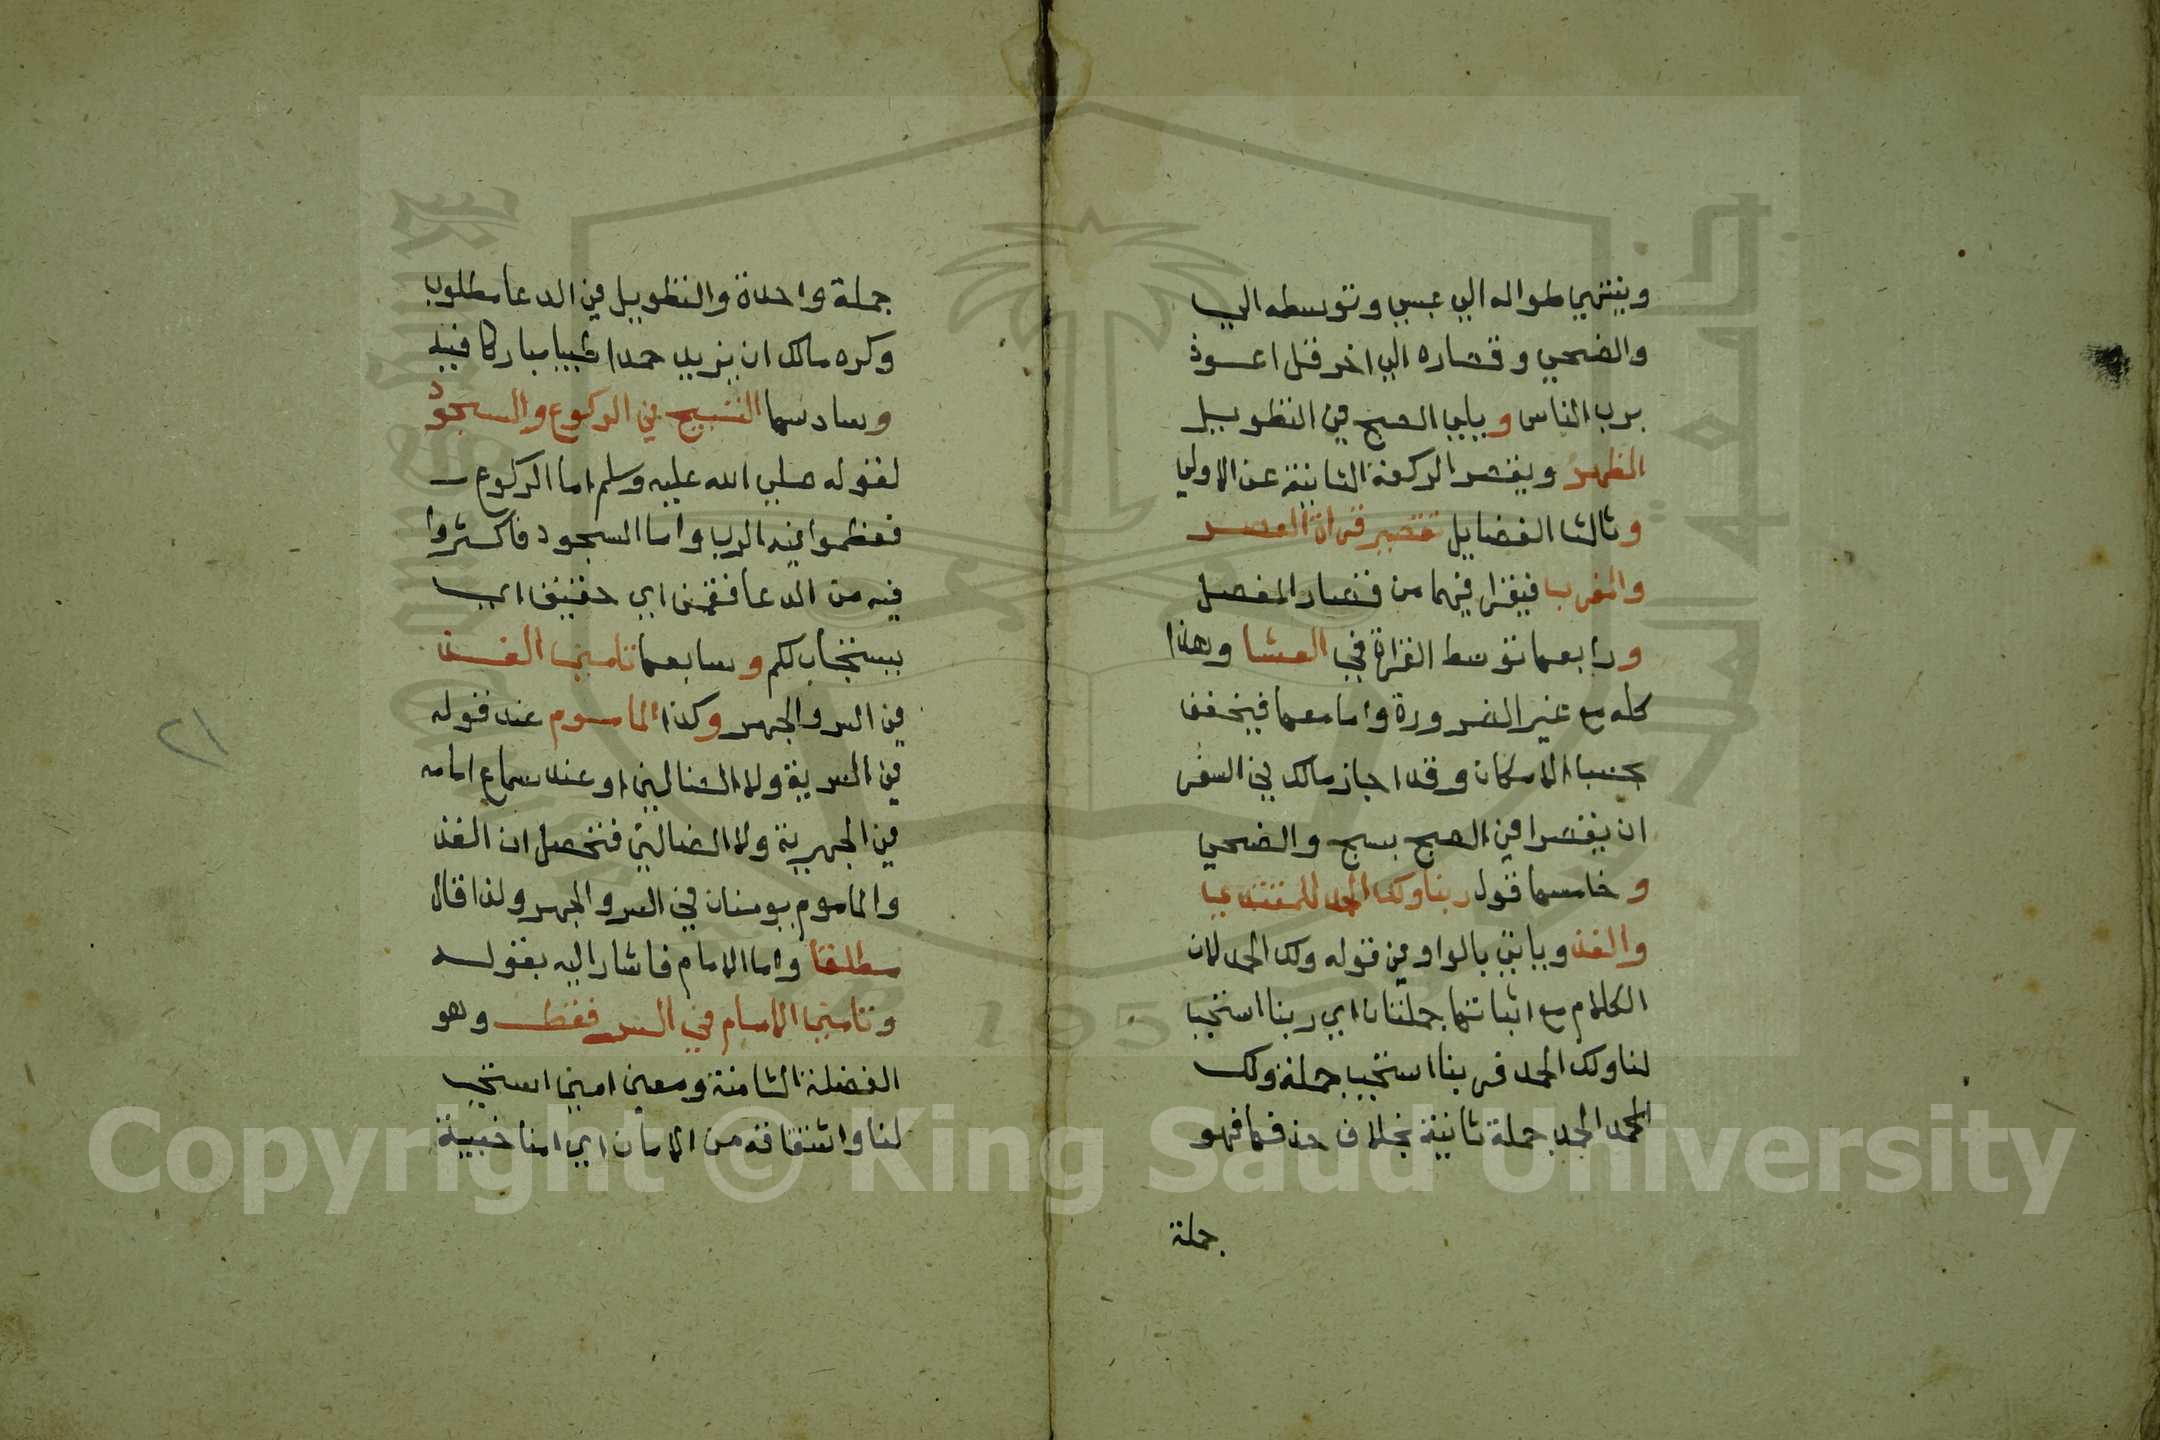 وينتهي طواله الي عبس وتوسطه الي
والضحي وقصاره الي اخر قل اعوذ
برب الناس ويلي الصبح في التطويل
الظهر ويقصر الركعة الثانية عن الاولي
وثالث الفضايل تقصير قراة العصر
والمغرب فيقرا فيهما من قصار المفصل
ورابعها توسط القراة في العشا وهذا
كله مع غير الضرورة واما معها فيخفف
بحسب الامكان وقد اجاز مالك في السفر
ان يقصرا في الصبح بسبح والضحي
وخامسها قول ربنا ولك الحمد للمقتدي
والفذ وياتي بالواو في قوله ولك الحمد لان
الكلام مع اثباتها جملتان اي ربنا استجب
لنا ولك الحمد فربنا استجب جملة ولك
الحمد الحمد جملة ثانية بخلاف حذفها فهو
جملة
جملة واحدة والتطويل في الدعا مطلوب
وكره مالك ان يزيد حمدا طيبا مباركا فيه
وسادسها التسبيح في الركوع والسجود
لقوله صلي الله عليه وسلم اما الركوع
فعظموا فيه الرب واما السجود فاكثروا
فيه من الدعا فقمن اي حقيق اي
يستجاب لكم وسابعها تامين الفذ
في السر والجهر وكذا الماموم عند قوله
في السرية ولا الضالين او عند سماع امامه
في الجهرية ولا الضالين فتحصل ان الفذ
والماموم يومنان في السر والجهر ولذا قال
مطلقا واما الامام فاشار اليه بقوله
وتامين الامام في السر فقط وهو
الفضلة الثامنة ومعني امين استجب
لنا واشتقاقه من الامان اي امنا خيبة
٢١
Copyright © King Saud University